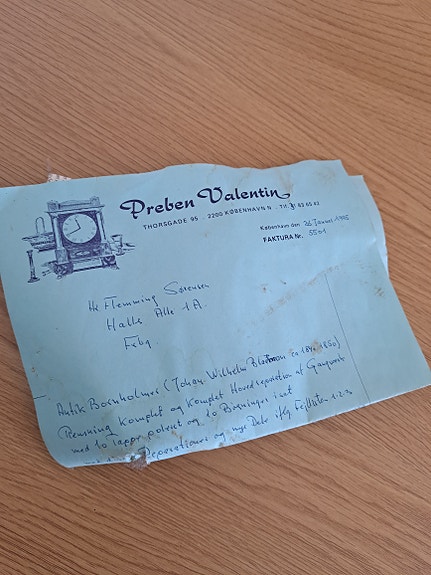 Preben Valentin
THORSGADE 95 - 2200 KØBENHAVN N - TLF. 31 83 65 82
København den 26 Januar 1995
FAKTURA Nr. 5501
Hr. Flemming Sørensen
Halls Alle 1A.
Antik Bornholmer (Johan Wilhelm ca 1840-1850)
Rensning Komplet og Komplet Hovedreperation af Gangværk
med 10 Tappe poleret og 10 Bøsninger isat
Reperationer og nye Dele iflg 1-2-3